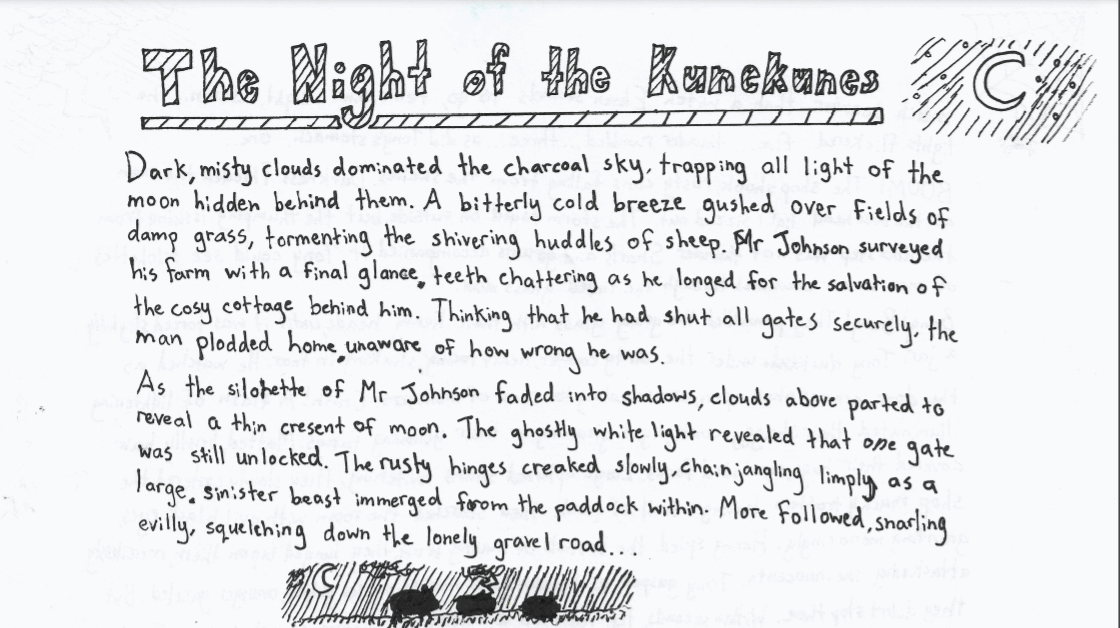 The Night of the Kunekunes
Dark, misty clouds dominated the charcoal sky, trapping all light of the
moon hidden behind them. A bitterly cold breeze gushed over fields of
damp grass, tormenting the shivering huddles of sheep. Mr Johnson surveyed
his farm with a final glance, teeth chattering as he longed for the salvation of
the cosy cottage behind him. Thinking that he had shut all gates securely, the
man plodded home, unaware of how wrong he was.
As the silohette of Mr Johnson faded into shadows, clouds above parted to
reveal a thin cresent of moon. The ghostly white light revealed that one gate
was still unlocked. The rusty hinges creaked slowly, chain jangling limply, as a
large, sinister beast immerged from the paddock within. More followed, snarling
evilly, squelching down the lonely gravel road....